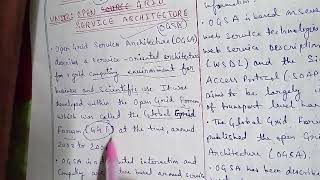 UNIT: OPEN GRID
SERVICE ARCHITECTURE
(OGSA)
• Open Grid Service Architecture (OGSA)
describes a service-oriented architecture
for a grid computing environment for
business and scientific use. It was
developed within the Open Grid Forum
which was called the Global Grid
Forum (GGF) at the time, around
2002 to
• OGSA is a interaction and
around service
information
• OGSA is based on
web service technologies
web service Description
(WSDL) and the Simple
Access Protocol (SOAP)
aims to be largely
of transport level
• The Global Grid Forum
published the open
Architecture (OGSA).